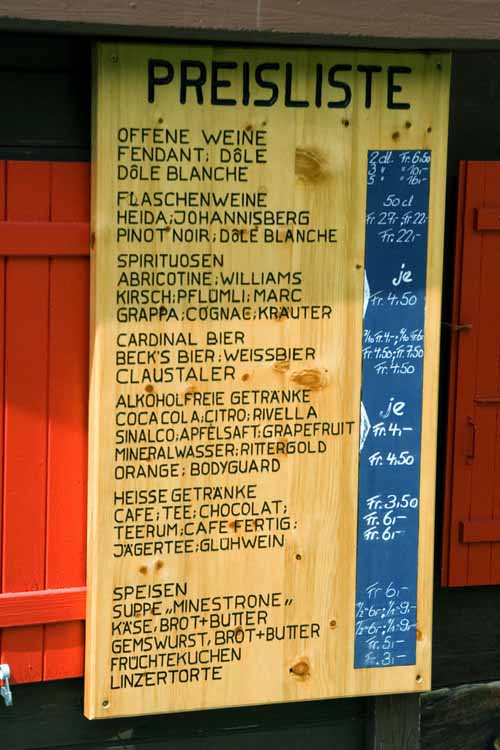 PREISLISTE
OFFENE WEINE
FENDANT; DÔLE 2 dl. Fr. 6,50
DÔLE BLANCHE 3 " " 10,-
5 " " 16,-
FLASCHENWEINE 50 cl
HEIDA; JOHANNISBERG Fr. 27,-; Fr. 22,-
PINOT NOIR; DÔLE BLANCHE Fr. 22,-
SPIRITUOSEN
ABRICOTINE; WILLIAMS je
KIRSCH; PFLÜMLI; MARC Fr. 4,50
GRAPPA; COGNAC; KRÄUTER
CARDINAL BIER Fr. 4,-; Fr. 6,-
BECK'S BIER; WEISSBIER Fr. 4,50; Fr. 7,50
CLAUSTALER Fr. 4,50
ALKOHOLFREIE GETRÄNKE
COCA COLA; CITRO; RIVELLA je
SINALCO; APFELSAFT; GRAPEFRUIT Fr. 4,-
MINERALWASSER; RITTERGOLD
ORANGE; BODYGUARD Fr. 4,50
HEISSE GETRÄNKE
CAFE; TEE; CHOCOLAT; Fr. 3,50
TEERUM; CAFE FERTIG; Fr. 6,-
JÄGERTEE; GLÜHWEIN Fr. 6,-
SPEISEN
SUPPE „MINESTRONE" Fr. 6,-
KÄSE, BROT+BUTTER ½ 6,-; ¹⁄₁ 9,-
GEMSWURST, BROT+BUTTER ½ 6,-; ¹⁄₁ 9,-
FRÜCHTEKUCHEN Fr. 5,-
LINZERTORTE Fr. 3,-